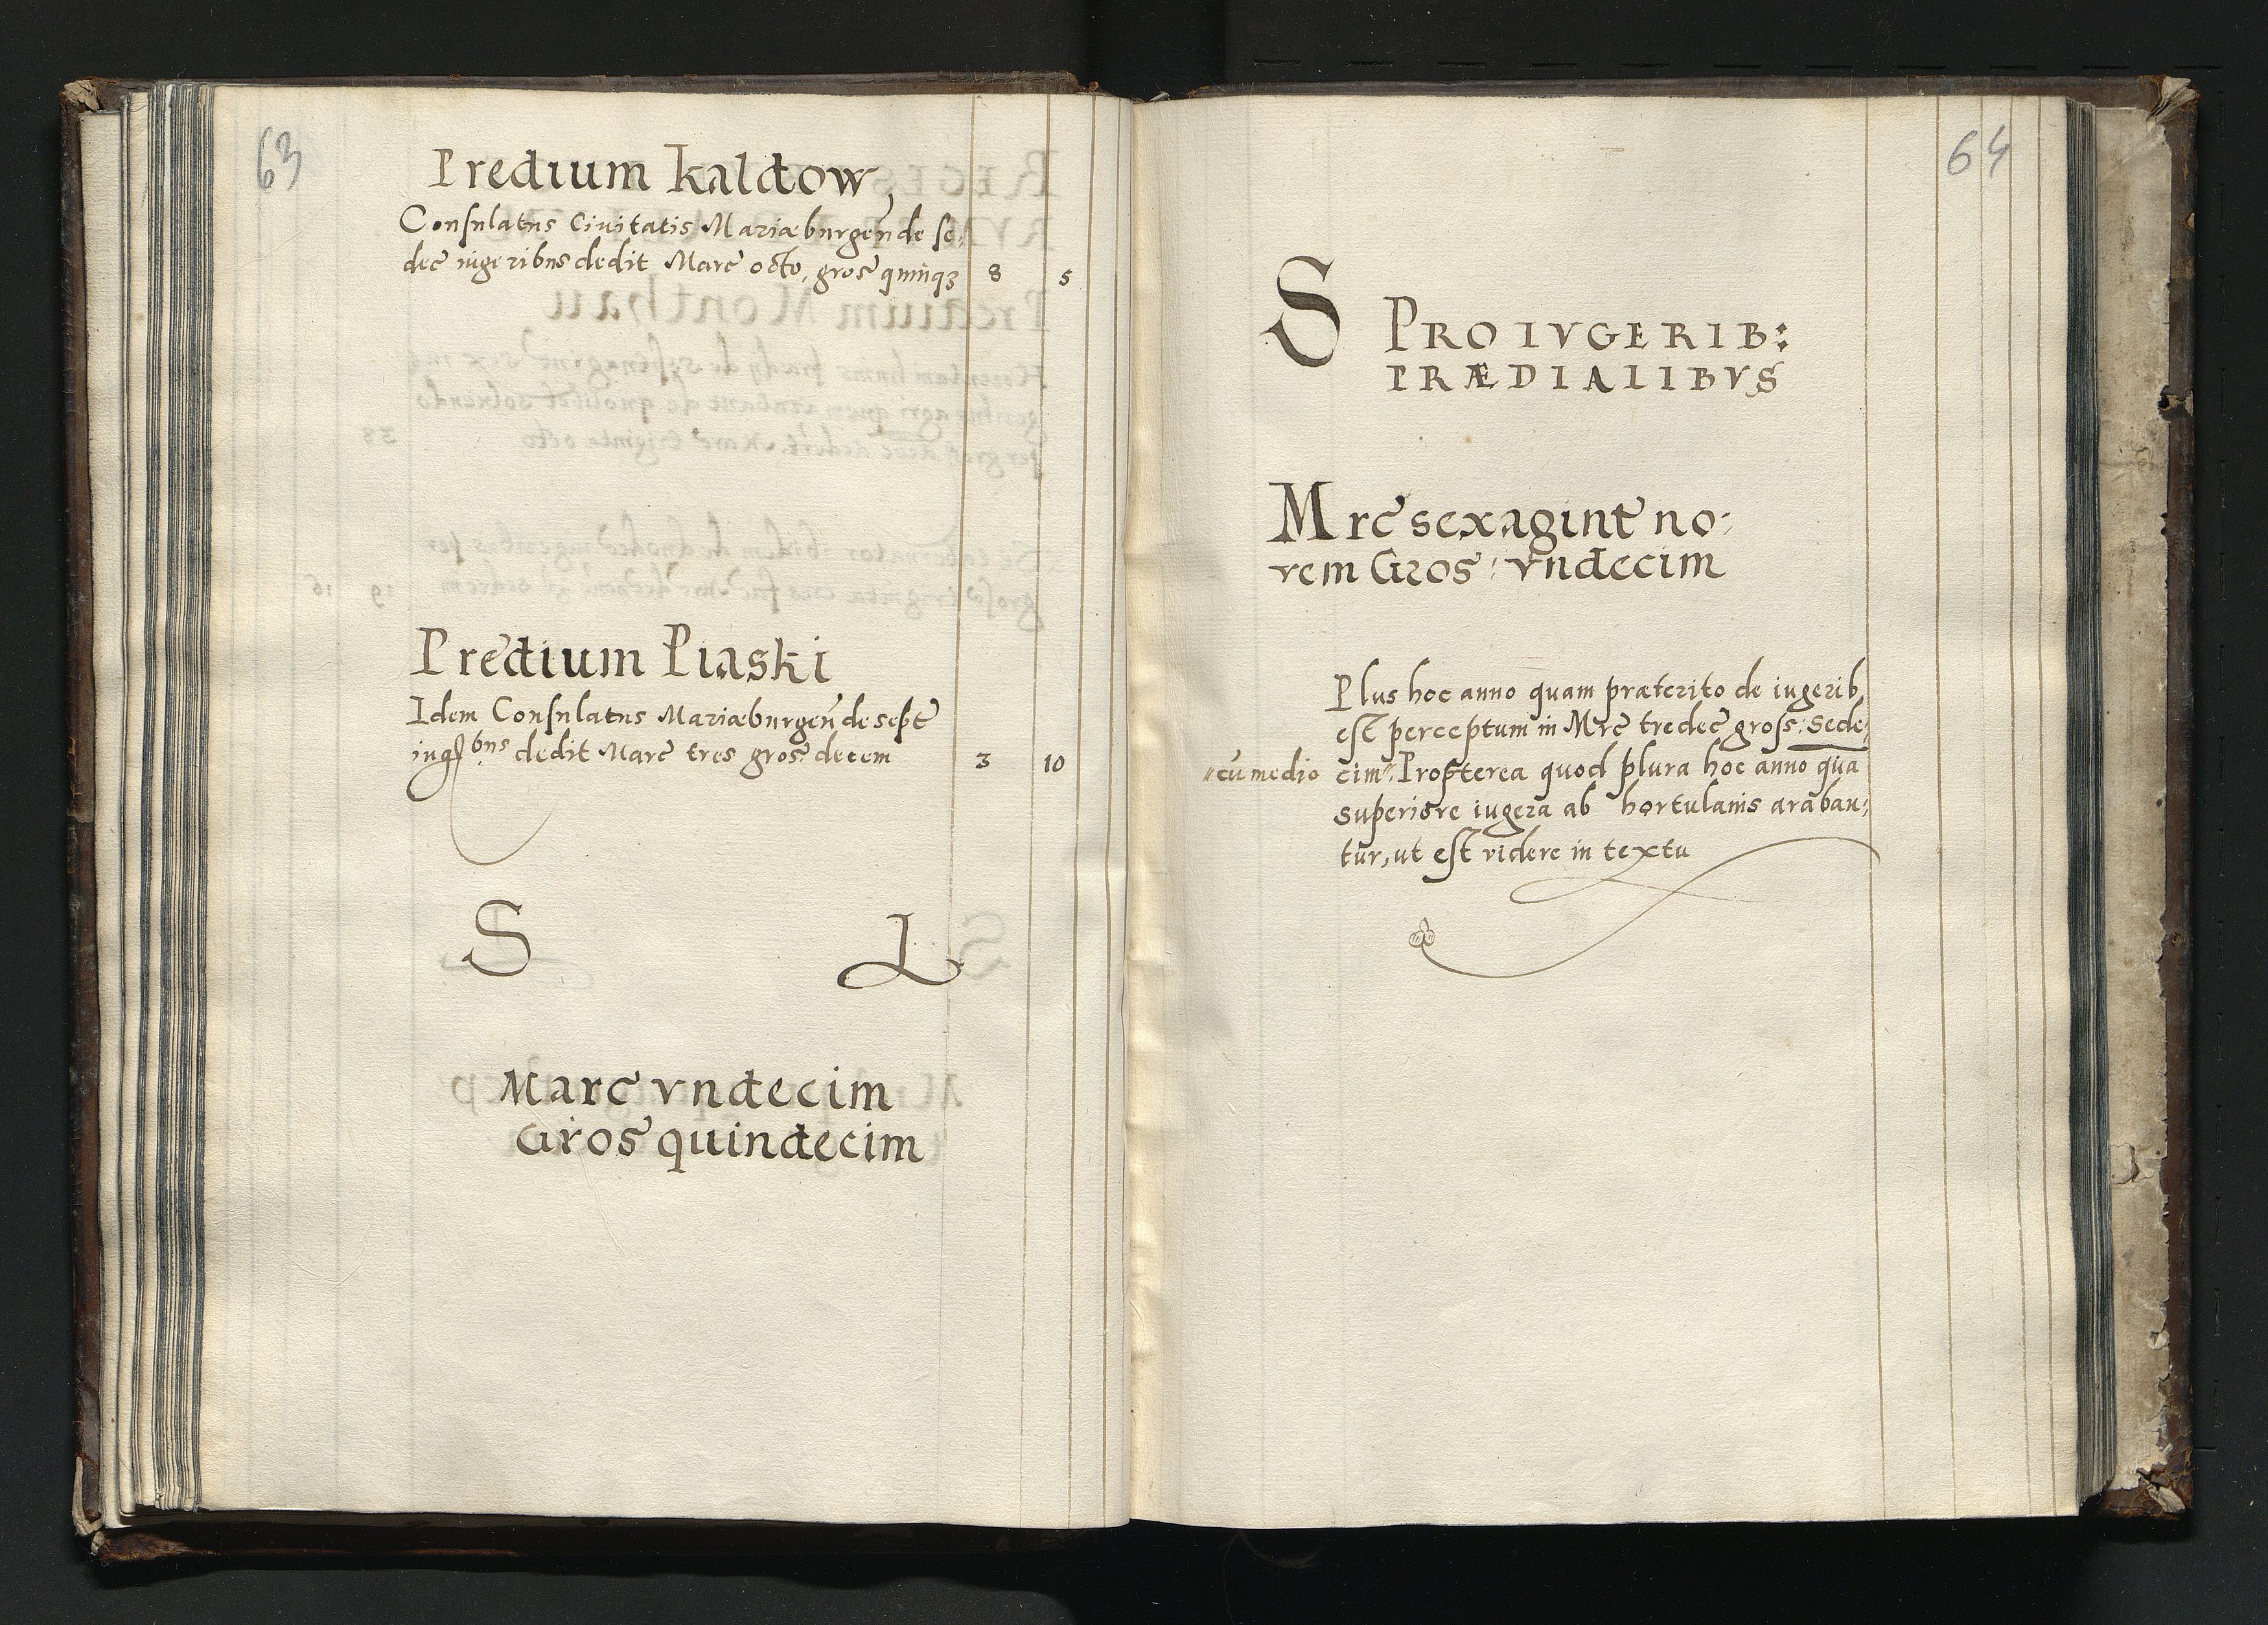 63
Predium Kaldow
Consulatus Ciuitatis Mariæburgen̄ de se,
dec̄ iugeribus dedit Marc̄ octo, gros̄ quinqȝ 8 5
Predium Piaski
Idem Consulatus Mariæburgen̄ de sept̄
iugꝭbus dedit Marc̄ tres gros̄ decem 3 10
S L
Marc̄ vndecim
Gros̄ quindecim
64
S PRO IVGERIB:
PRÆDIALIBVS
Mrc̄ sexagint̄ no:
vem Gros: vndecim
Plus hoc anno quam præterito de iugerib,
est perceptum in Mrc̄ tredec̄ gross: sede,
"cū medio cim". Propterea quod plura hoc anno quā
superiore iugera ab hortulanis araban,
tur, ut est videre in textu